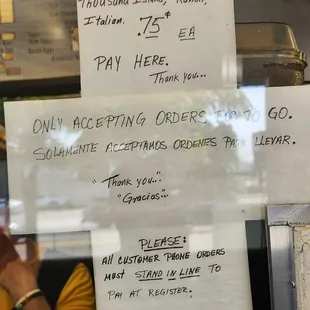 Thousand Island, Ranch,
Italian. .75¢ EA
PAY HERE.
Thank you...
ONLY ACCEPTING ORDERS FOR TO GO.
SOLAMENTE ACCEPTAMOS ORDENES PARA LLEVAR.
"Thank you..."
"Gracias..."
PLEASE:
All CUSTOMER PHONE ORDERS
MUST STAND IN LINE TO
PAY AT REGISTER.